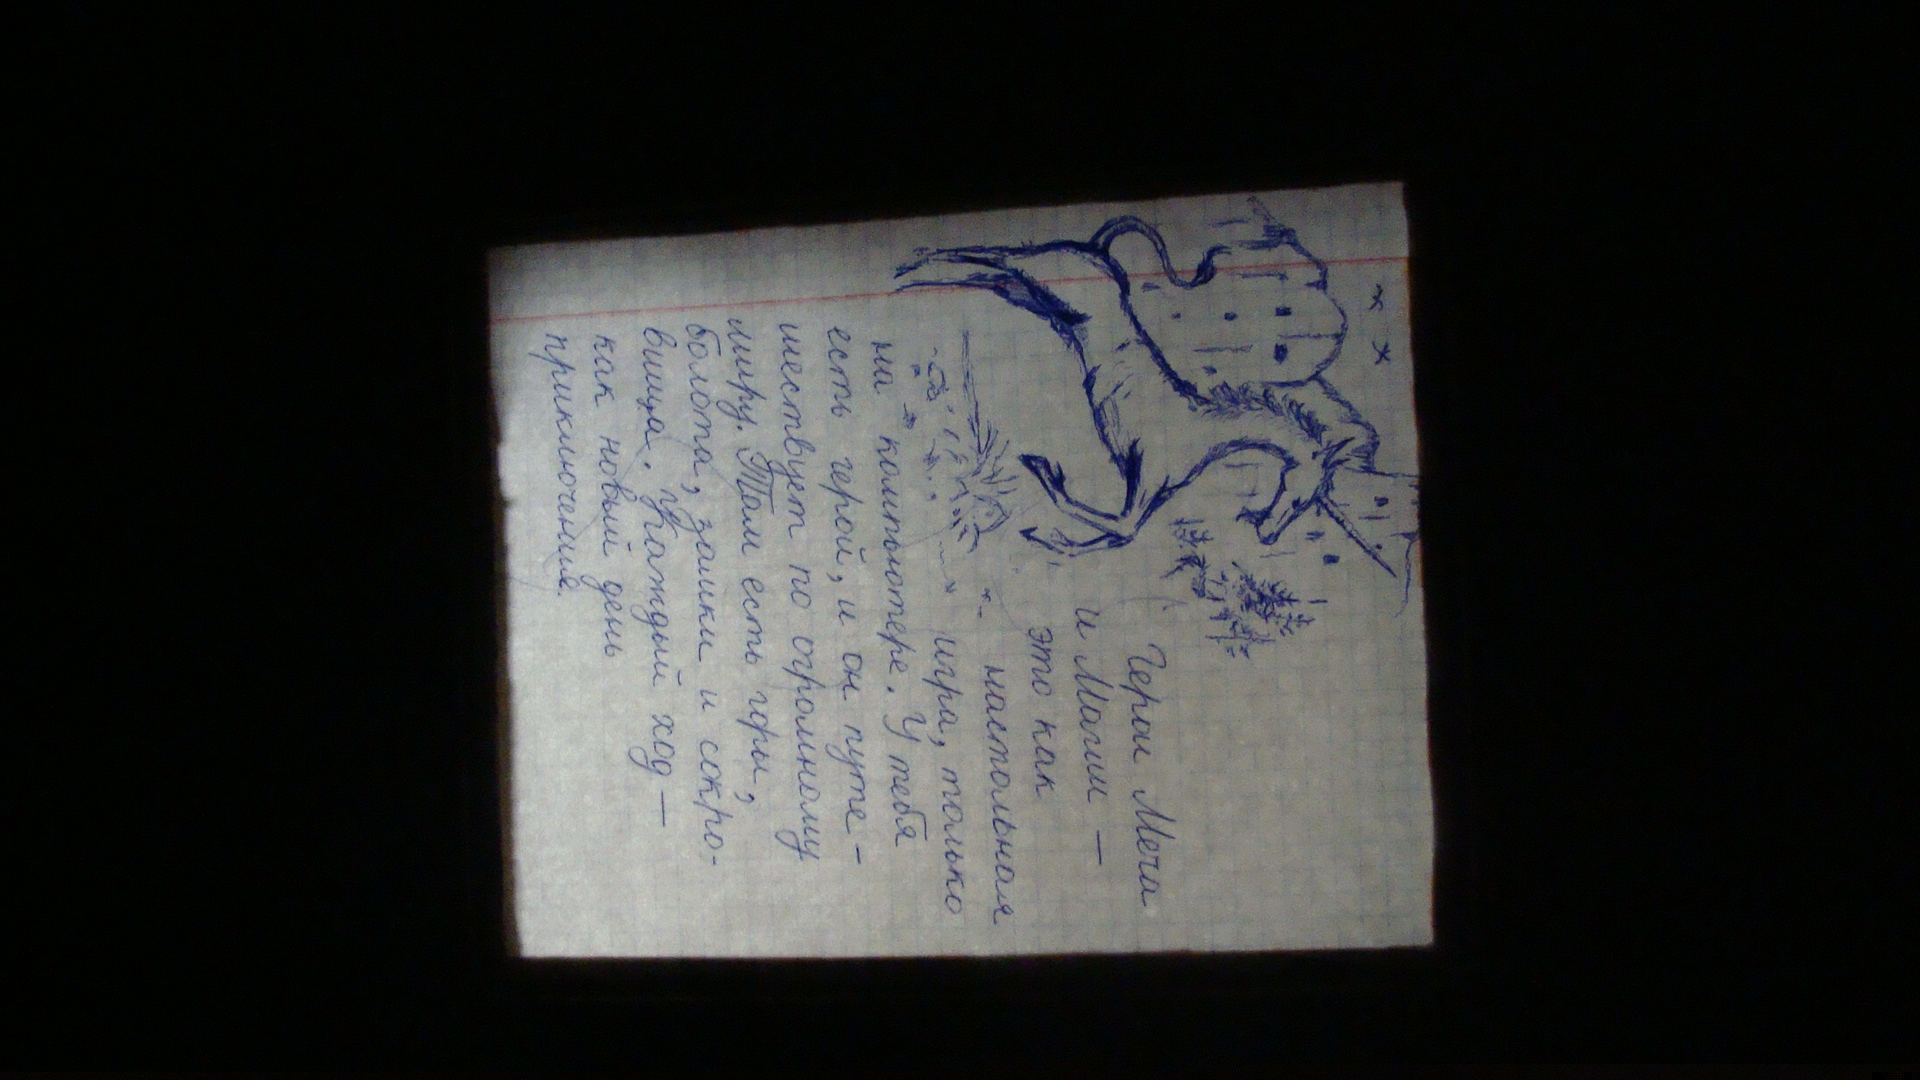 Герои Меча
и Магии —
это как
настольная
игра, только
на компьютере. У тебя
есть герой, и он путе-
шествует по огромному
миру. Там есть горы,
болота, замки и сокро-
вища. Каждый ход —
как новый день
приключения.